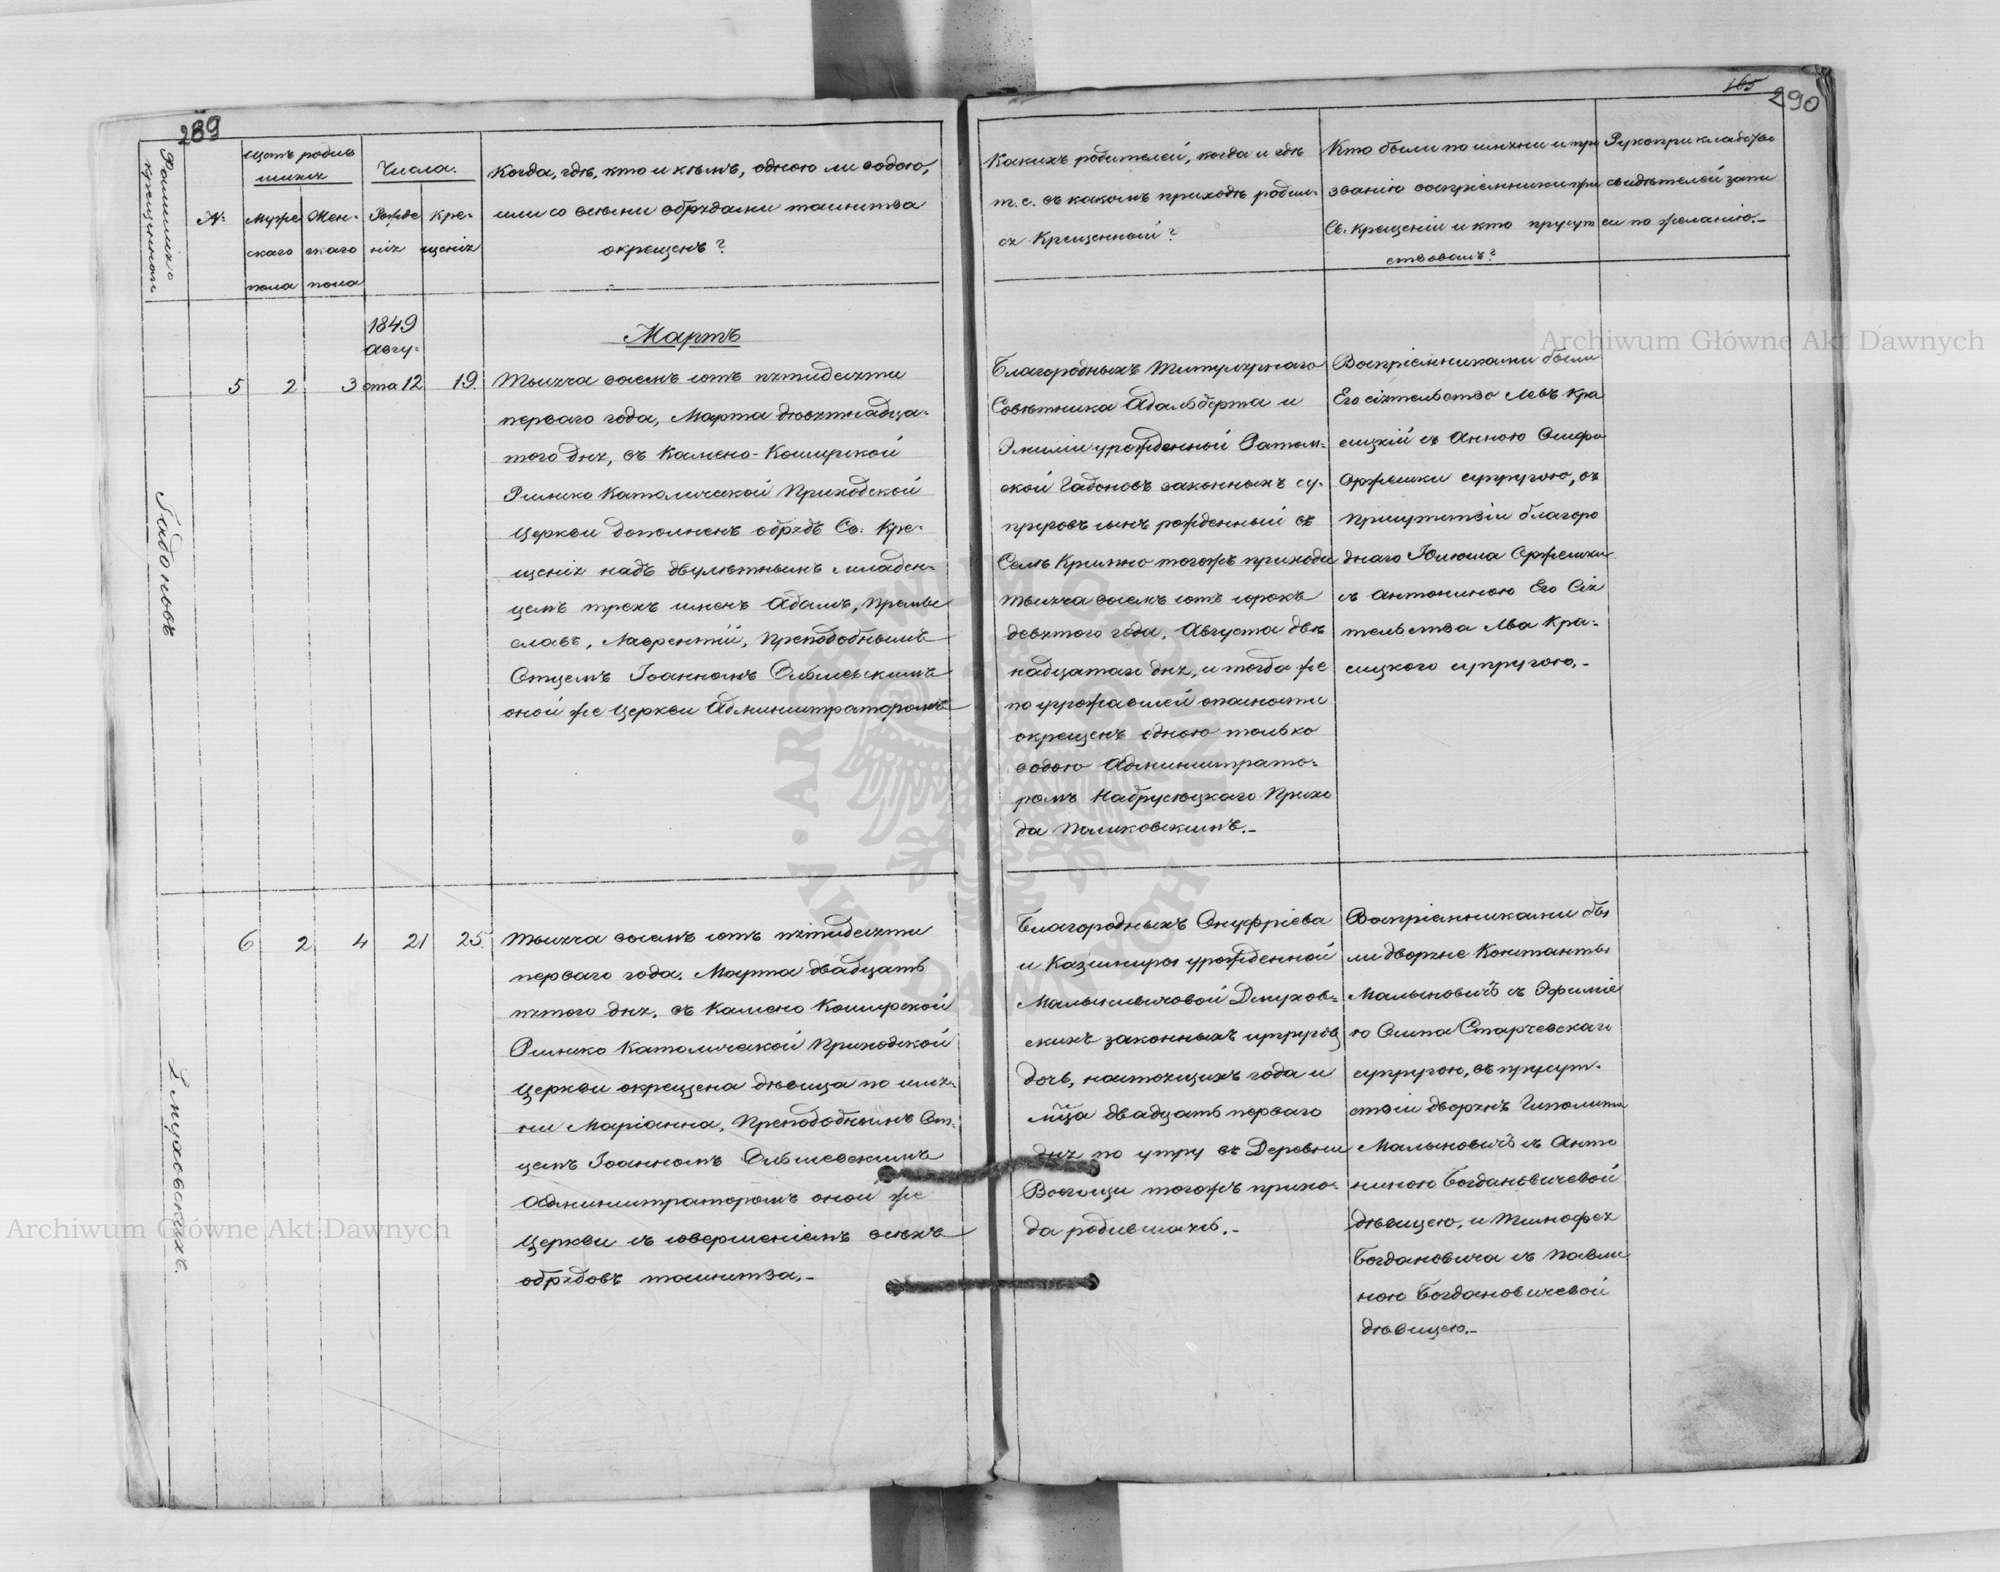 289
Фамилия
крещеннаго
№
Щотъ родив
шихся
Муже
скаго
пола
Жен-
скаго
пола
Числа.
Рожде
нія
Кре-
щенія
Когда, гдѣ, кто и кѣмъ, одною ли водою,
или со всѣми обрядами таинства
окрещенъ?
Мартъ
1849
Авгу-
ста 12
5
2
3
19.
Гадоновъ
Тысяча восемъ сотъ пятидесяти
перваго года, Марта девятнадца-
того дня, въ Камено-Коширской
Римско Католической Приходской
Церкви дополненъ обрядъ Св. Кре-
щенія надъ двулѣтнымъ младен-
цемъ трехъ именъ Адамъ, Премы
славъ, Лаврентій, Преподобнымъ
Отцемъ Іоанномъ
оной же Церкви Администраторомъ
6
2
4
21
25.
Дмуховскихъ.
Тысяча восемъ сотъ пятидесяти
перваго года. Марта двадцать
пятого дня. въ Камено Коширской
Римско Католической Приходской
Церкви окрещена дѣвица по име-
ни Маріанна, Преподобнымъ От-
цемъ Іоанномъ
Администраторомъ оной же
Церкви съ совершеніемъ всѣхъ
обрядовъ таинства.-
165
290
Какихъ родителей, когда и гдѣ
т. е. въ какомъ приходѣ родил-
ся Крещенный?
Кто были по имени и про
званію воспріемники при
Св. Крещеніи и кто присут
ствовалъ?
Рукоприкладство
свидѣтелей запи
си по желанію.-
Благородныхъ Титулярнаго
Совѣтника Адальберта и
Эмиліи урожденной
Гадоновъ законныхъ су-
пруговъ сынъ рожденный въ
Селѣ Кримно тогожъ прихода
тысяча восемъ сотъ сорокъ
девятого года. Августа двѣ
надцатаго дня, и тогда же
по угрожавшей опасности
окрещенъ одною только
водою Администрато-
ромъ Прихо
да Поляковскимъ.-
Воспріемниками были
Его сіятельство Левъ Кра
сицкій съ Анною
Оржешки супругою, въ
присутствіи благоро
днаго Юліюша Оржешки
съ Антониною Его Сія
тельства Льва Кра-
сицкого супругою.-
Благородныхъ Онуфріева
и Казимиры урожденной
Дмухов-
скихъ законныхъ супруговъ
дочь, настоящихъ года и
мца двадцать перваго
дня по утру въ Деревни
тогожъ прихо-
да родившаясь.-
Воспріемниками бы
ли дворяне Константы
Малыновичъ съ Эфиміе
ю Осипа Старчевскаго
супругою, въ присут-
ствіи дворянъ Гиполита
Малыновичъ съ Анто
ниною Богдановичевой
дѣвицею, и Тимофея
Богдановича съ Павли
ною Богдановичевой
дѣвицею.-
Archiwum Główne Akt Dawnych
Archiwum Główne Akt Dawnych